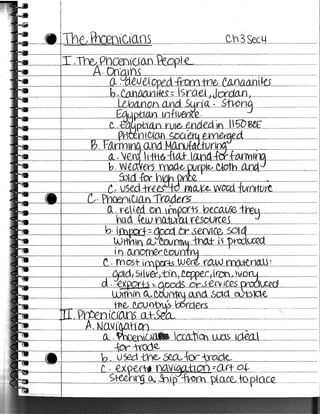 The Phoenicians Ch 3 Sec 4
I. The Phoenician People
A. Origins
a. developed from the Canaanites
b. Canaanites = Israel, Jordan,
Lebanon and Syria. Strong
Egyptian influence
c. Egyptian rule ended in 1150 BCE
Phoenician society emerged
B. Farming and Manufacturing
a. Very little flat land for farming
b. Weavers made purple cloth and
sold for high price
c. used trees to make wood furniture
C. Phoenician Traders
a. relied on imports because they
had few natural resources
b. import = good or service sold
within a country that is produced
in another country
c. most imports were raw materials:
gold, silver, tin, copper, iron, ivory
d. exports = goods or services produced
within a country and sold outside
the country's borders
II. Phoenicians at Sea
A. Navigation
a. Phoenicia location was ideal
for trade
b. used the sea for trade
c. expert navigation = art of
steering a ship from place to place